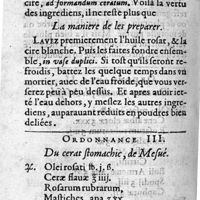 cire, ad formandum ceratum, Voilà la vertu
des ingrediens, il ne reste plus que
La maniere de les preparer.
LAVEZ premierement l'huile rosat, & la
cire blanche. Puis les faites fondre ensem-
ble, in vase duplici. Si tost qu'ils seront re-
froidis, battez les quelque temps dans vn
mortier, auec de l'eau froide, que vous ver-
serez peu à peu dessus. Et apres auoir iet-
té l'eau dehors, y meslez les autres ingre-
diens, auparauant réduits en poudres bien
deliées.
ORDONNANCE III.
Du cerat stomachic, de Mesué.
℞. Olei rosati ℔. j. ß.
Ceræ flauæ ℥ iij.
Rosarum rubrarum,
Mastiches, ana